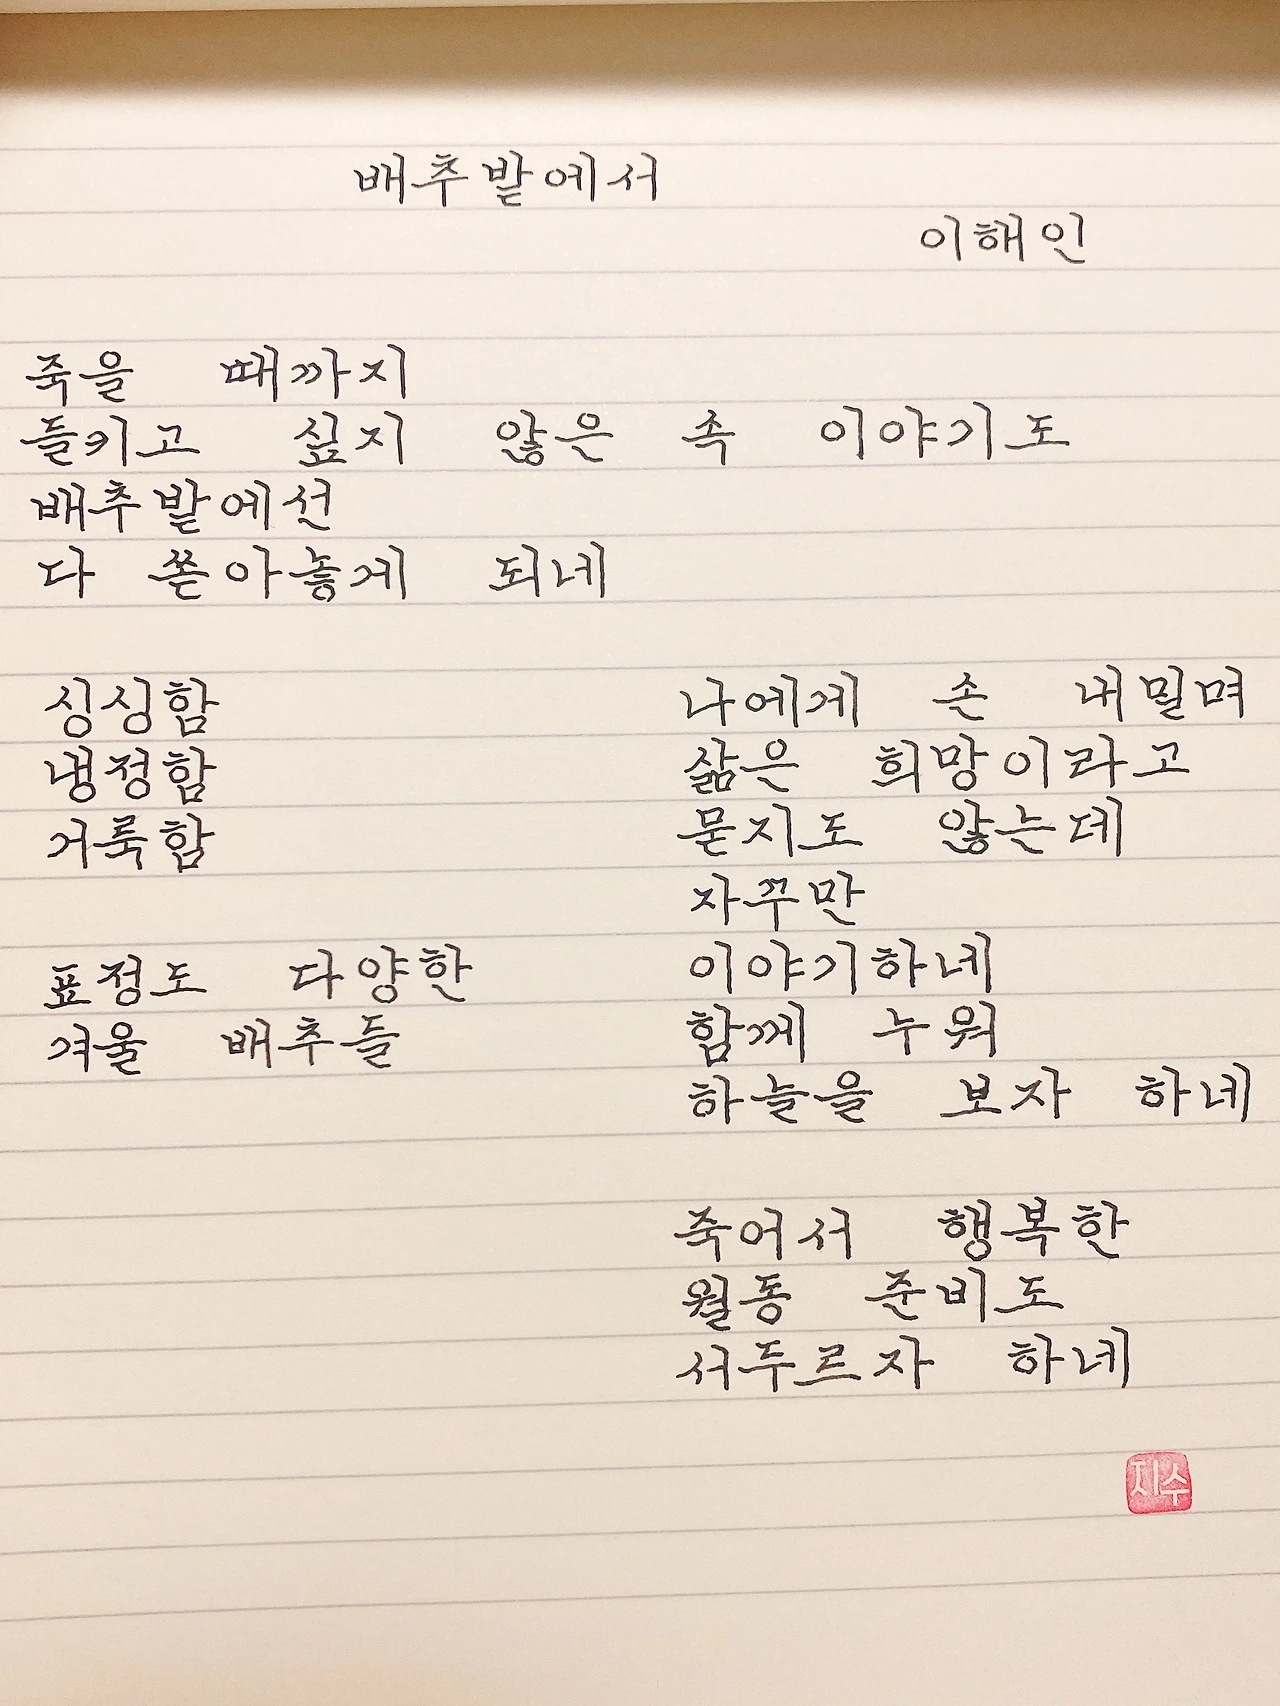 배추밭에서
이해인
죽을 때까지
들키고 싶지 않은 속 이야기도
배추밭에선
다 쏟아놓게 되네
싱싱함
냉정함
거룩함
표정도 다양한
겨울 배추들
나에게 손 내밀며
삶은 희망이라고
묻지도 않는데
자꾸만
이야기하네
함께 누워
하늘을 보자 하네
죽어서 행복한
월동 준비도
서두르자 하네
지수